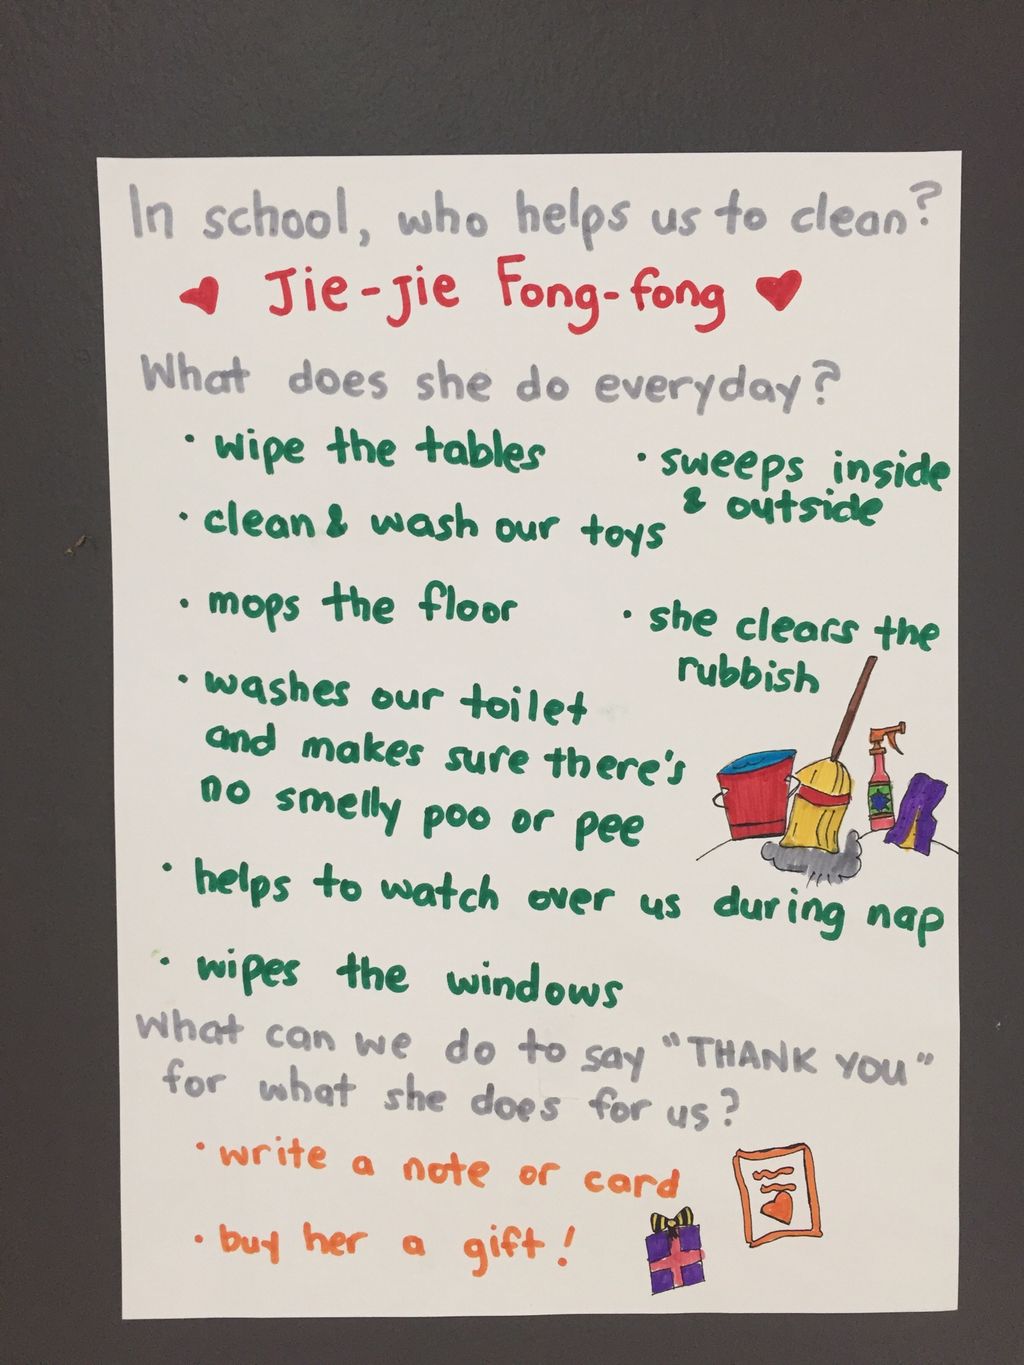 In school, who helps us to clean?
Jie-jie Fong-fong
What does she do everyday?
• wipe the tables
• clean & wash our toys
• mops the floor
• washes our toilet
and makes sure there's
no smelly poo or pee
• sweeps inside
& outside
• she clears the
rubbish
• helps to watch over us during nap
• wipes the windows
What can we do to say "THANK YOU"
for what she does for us?
• write a note or card
• buy her a gift!